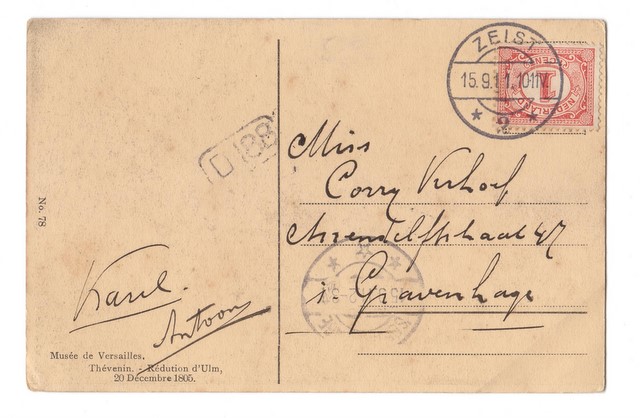 ZEIST
15.9.11.10-11V
2
NEDERLAND
1
CENT
D 188
Miss
Corry Verhoef
Arendelfstraat 47
's Gravenhage
No. 78
Karel.
Antoon
Musée de Versailles.
Thévenin. - Rédution d'Ulm,
20 Décembre 1805.